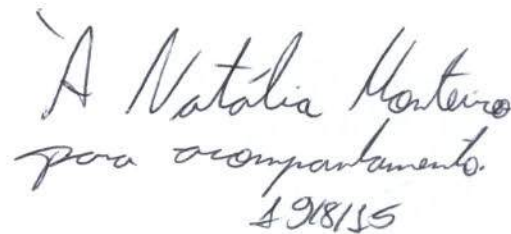 À Natália Monteiro
para acompanhamento.
19/8/15